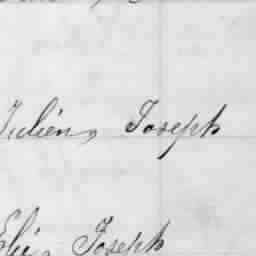 Julien, Joseph
Elie, Joseph